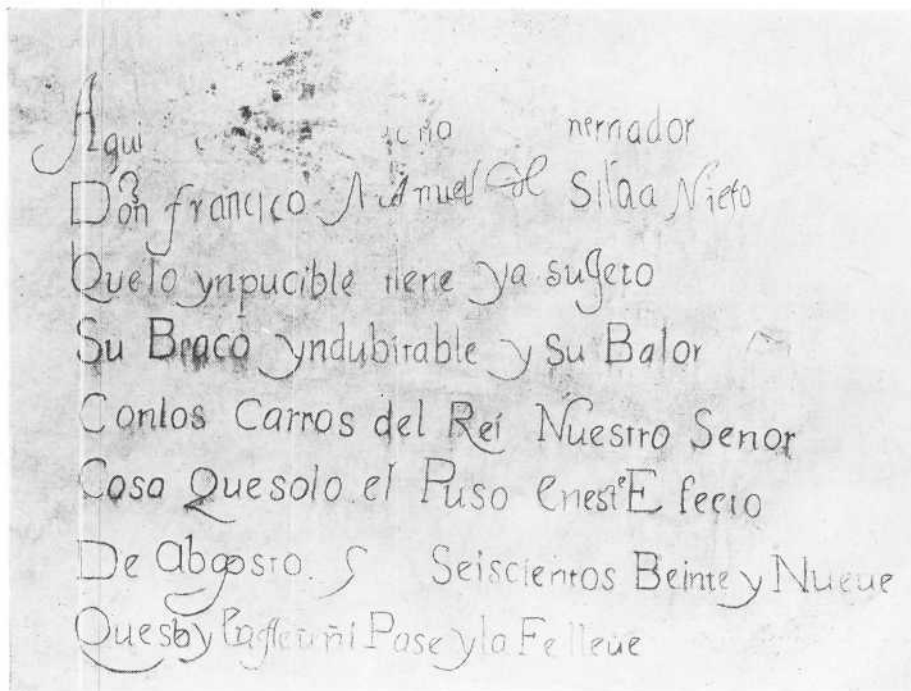 Aqui nernador
Don francico Manuel de Silua Nieto
Quelo ynpucible tiene ya sugeto
Su Braco yndubitable y Su Balor
Conlos Carros del Rei Nuestro Senor
Cosa Quesolo el Puso EnestE fecto
De Abgosto Seiscientos Beinte y Nueue
Pase y la Fe lleue